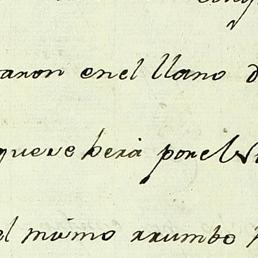 aron enel llano d
queve berá porel
el mismo rrumbo